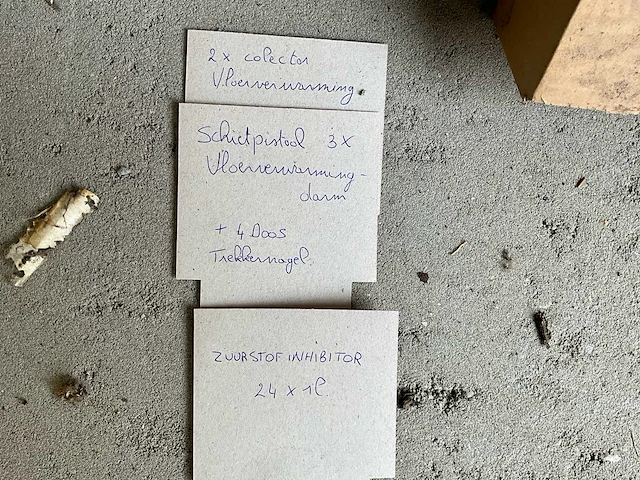 2 x colector
Vloerverwarming
Schietpistool 3x
Vloerverwarming-
darm
+ 4 Doos
Trekkernagel.
ZUURSTOF INHIBITOR
24 x 1l.